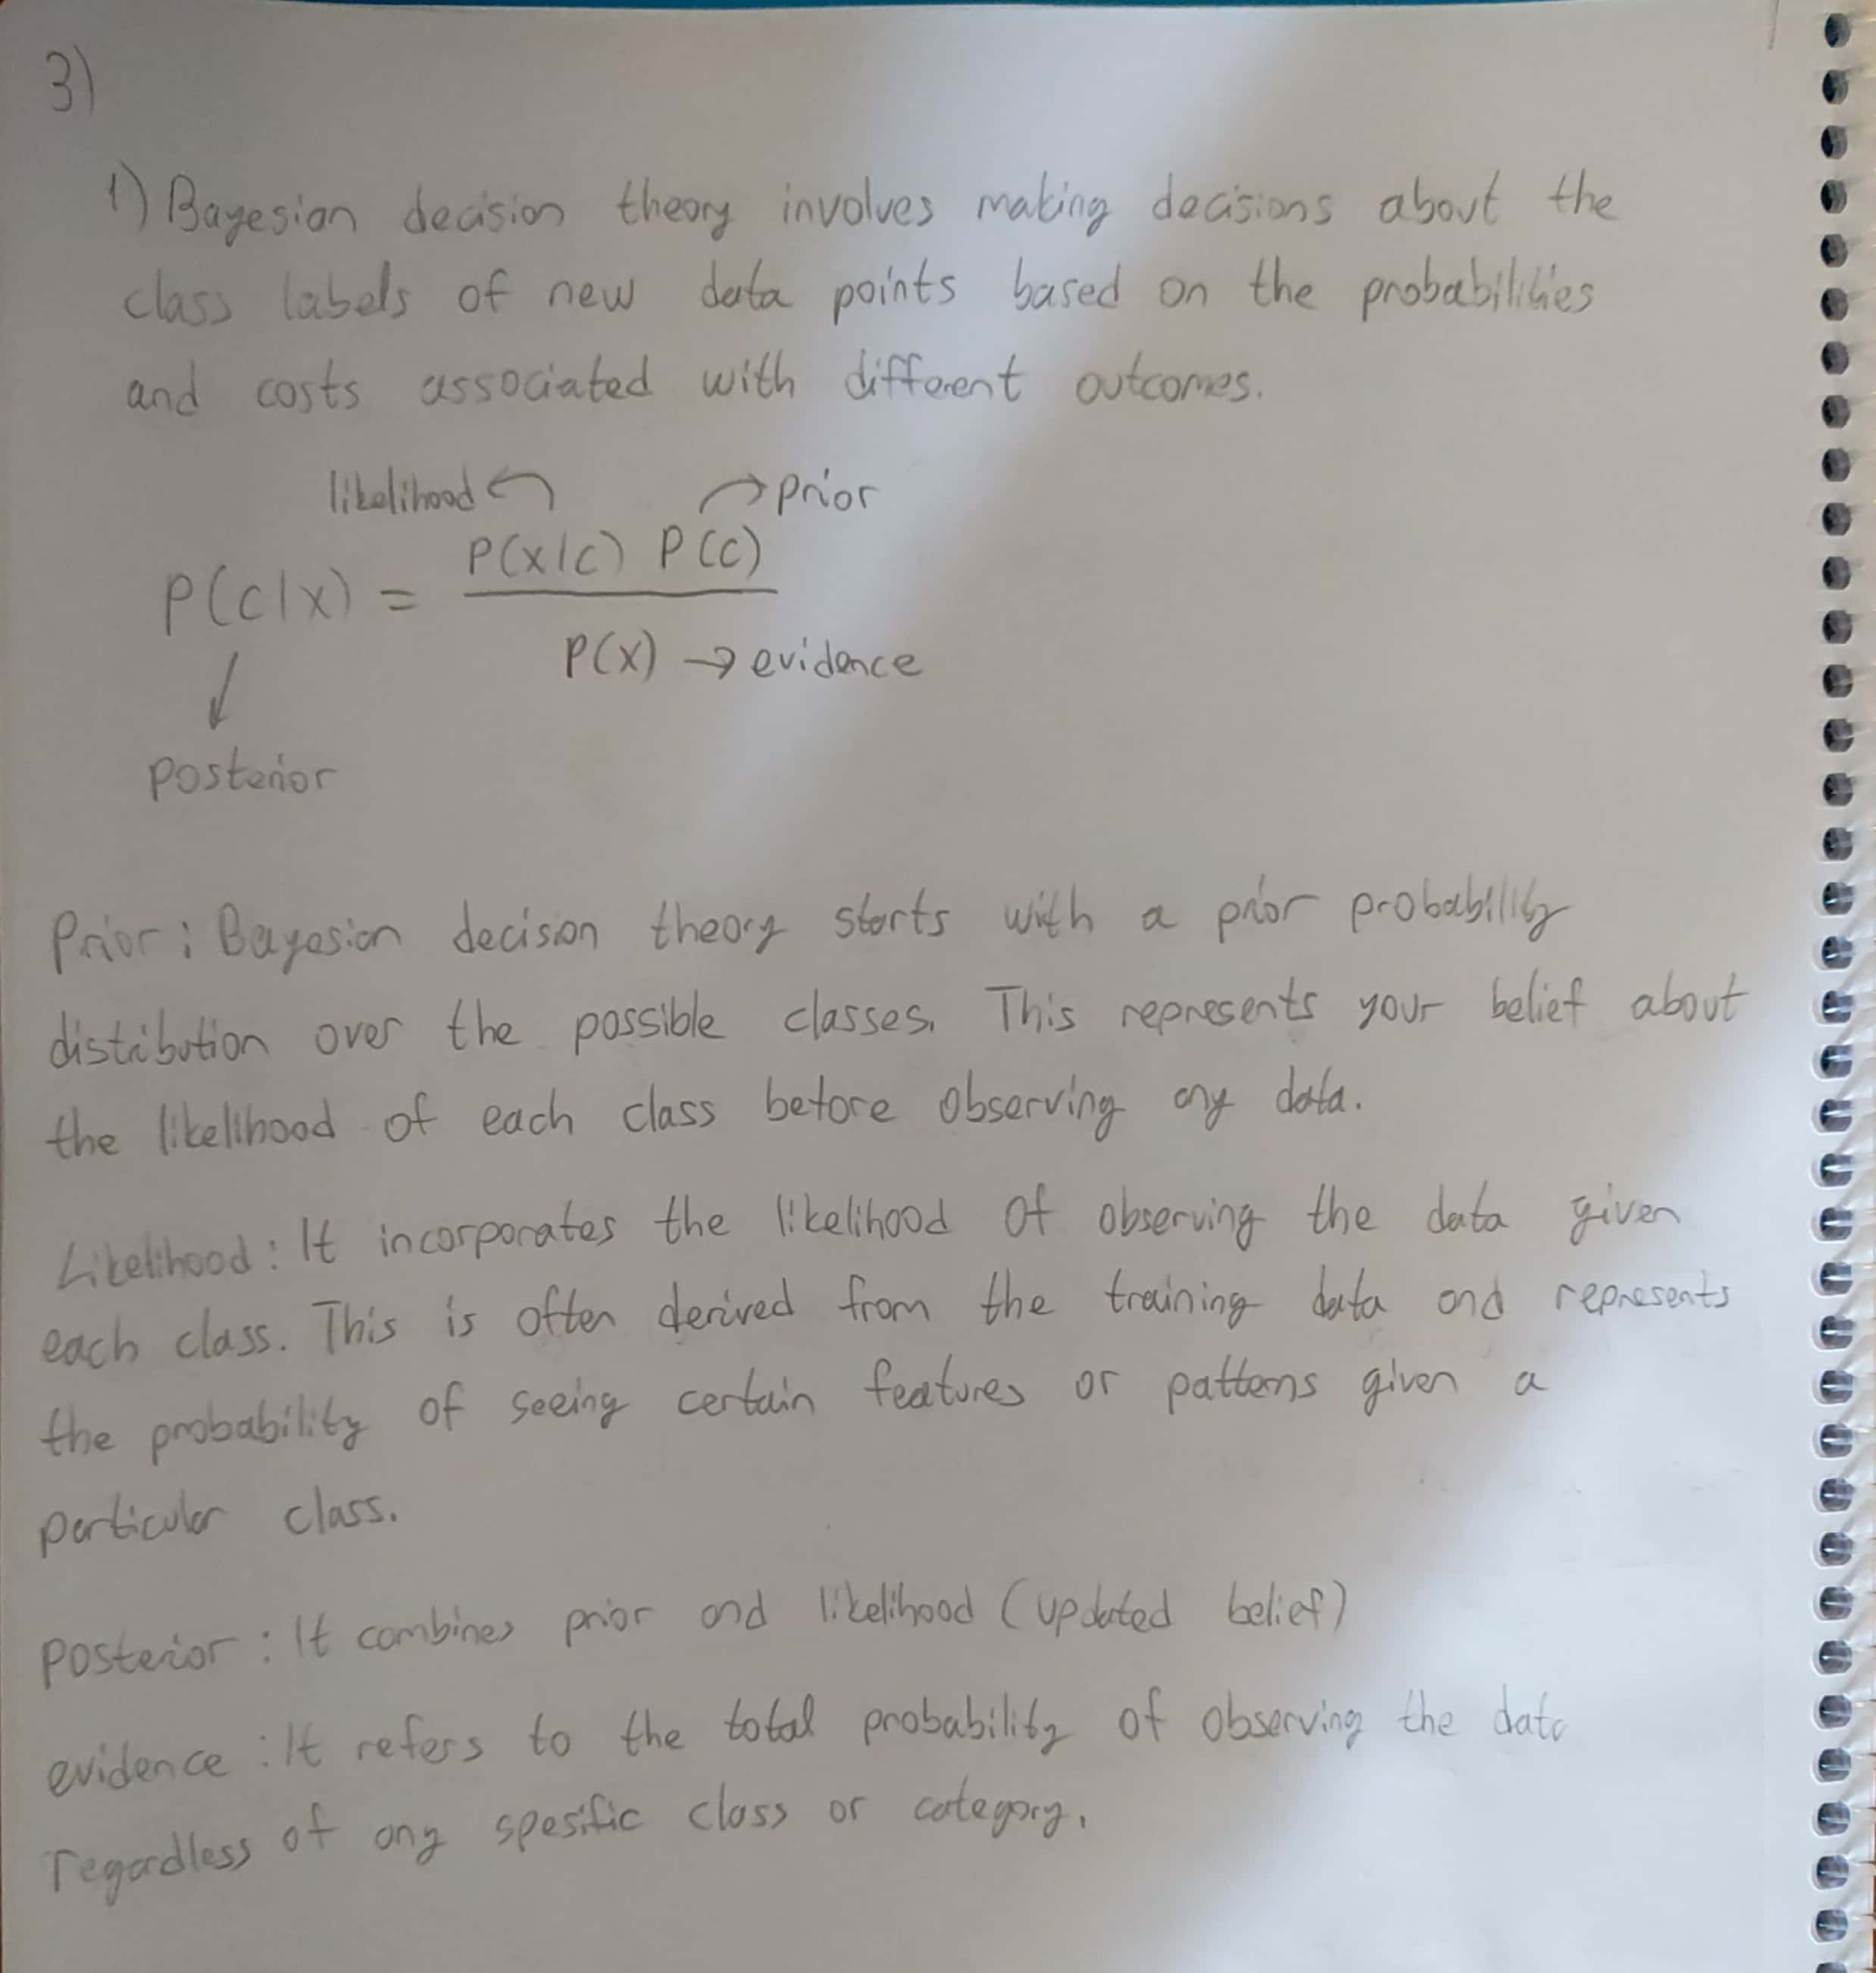 3)
1) Bayesian decision theory involves making decisions about the
class labels of new data points based on the probabilities
and costs associated with different outcomes.
likelihood ↶ ↷ prior
P(x|c) P(c)
P(c|x) =
P(x) → evidence
↓
posterior
Prior: Bayesian decision theory starts with a prior probability
distribution over the possible classes. This represents your belief about
the likelihood of each class before observing any data.
Likelihood: It incorporates the likelihood of observing the data given
each class. This is often derived from the training data and represents
the probability of seeing certain features or patterns given a
particular class.
posterior: It combines prior and likelihood (updated belief)
evidence: It refers to the total probability of observing the data
regardless of any spesific class or category.